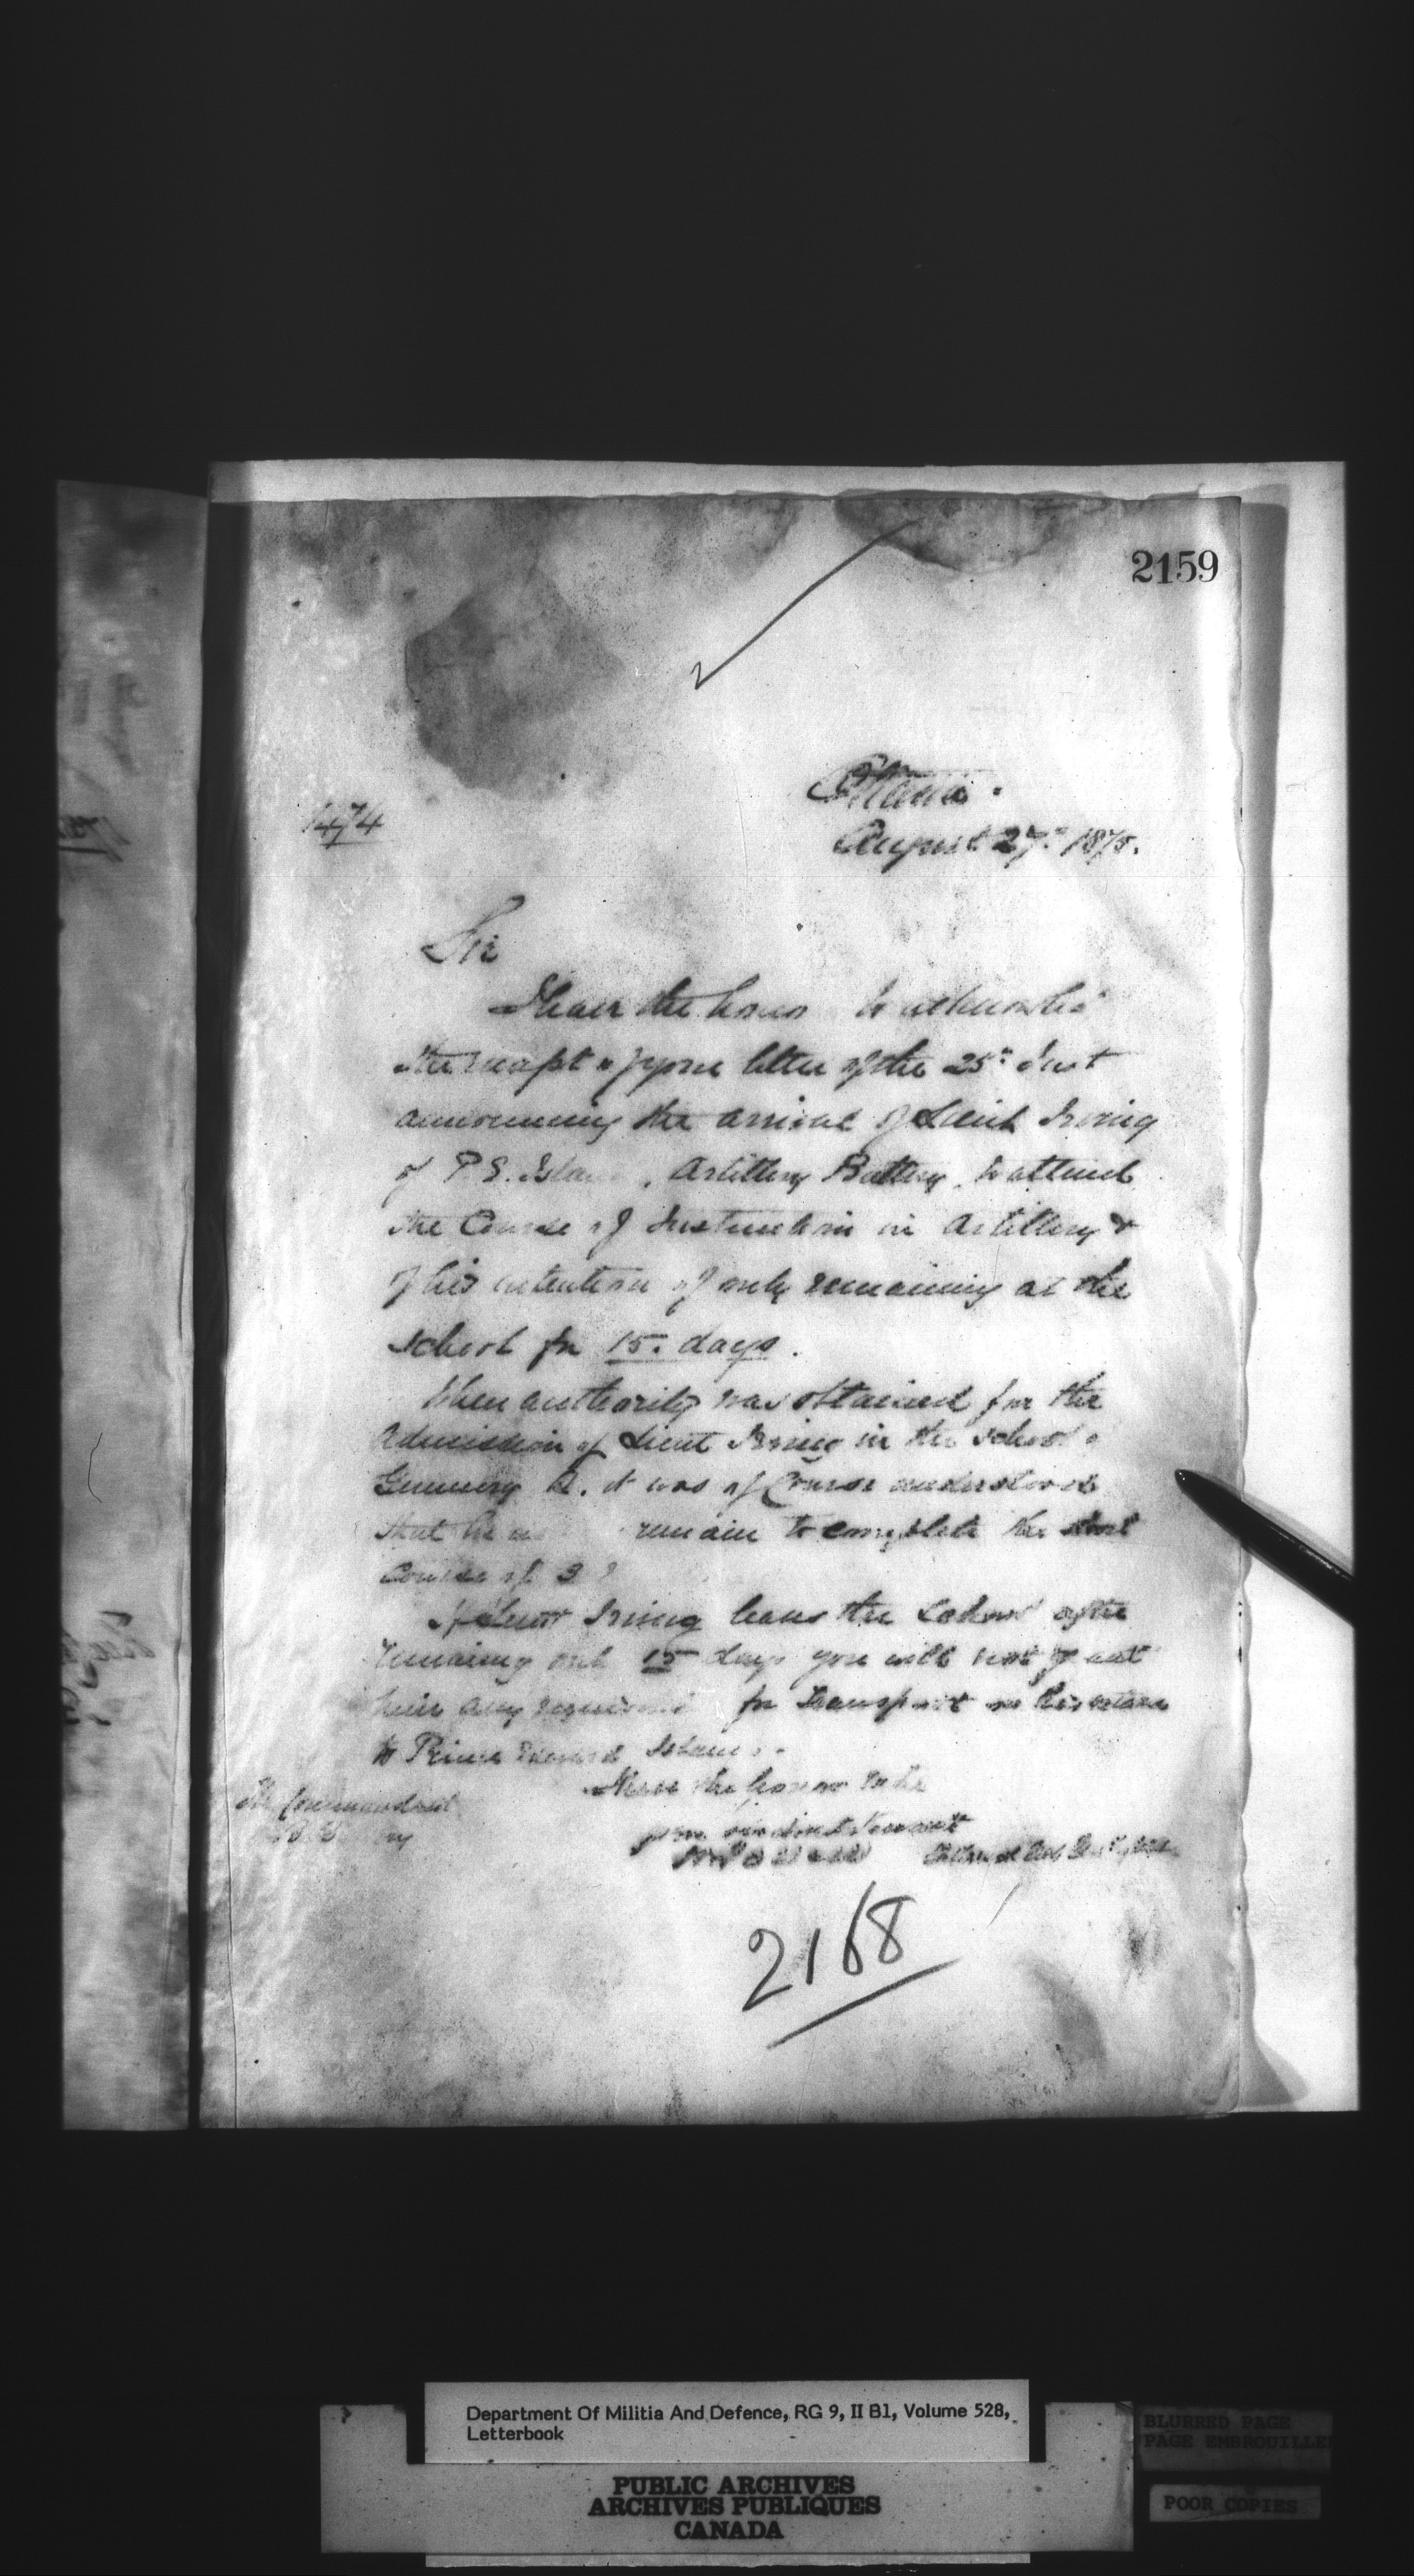 2159
1474
Ottawa.
August 27th 1875.
Sir
I have the honor to acknowle
the receipt of your letter of the 25th Inst
announcing the arrival of Lieut Irving
of P.E. Islan . Artillery Battery, to attend
the Course of Instruction in Artillery &
of his intention of only remaining at the
School for 15. days.
When authority was obtained for the
admission of Lieut Irving in the School o
Gunnery it was of Course understood
that he remain to complete the short
Course of 3
If Lieut Irving leaves the School after
remaining only 15 days you will not grant
him any for transport on his return
to Prince Edward Islan
I have the honor to be
your obedient Servant
The Commandant
2168
Department Of Militia And Defence, RG 9, II B1, Volume 528,
Letterbook
BLURRED PAGE
PAGE EMBROUILLE
POOR COPIES
PUBLIC ARCHIVES
ARCHIVES PUBLIQUES
CANADA